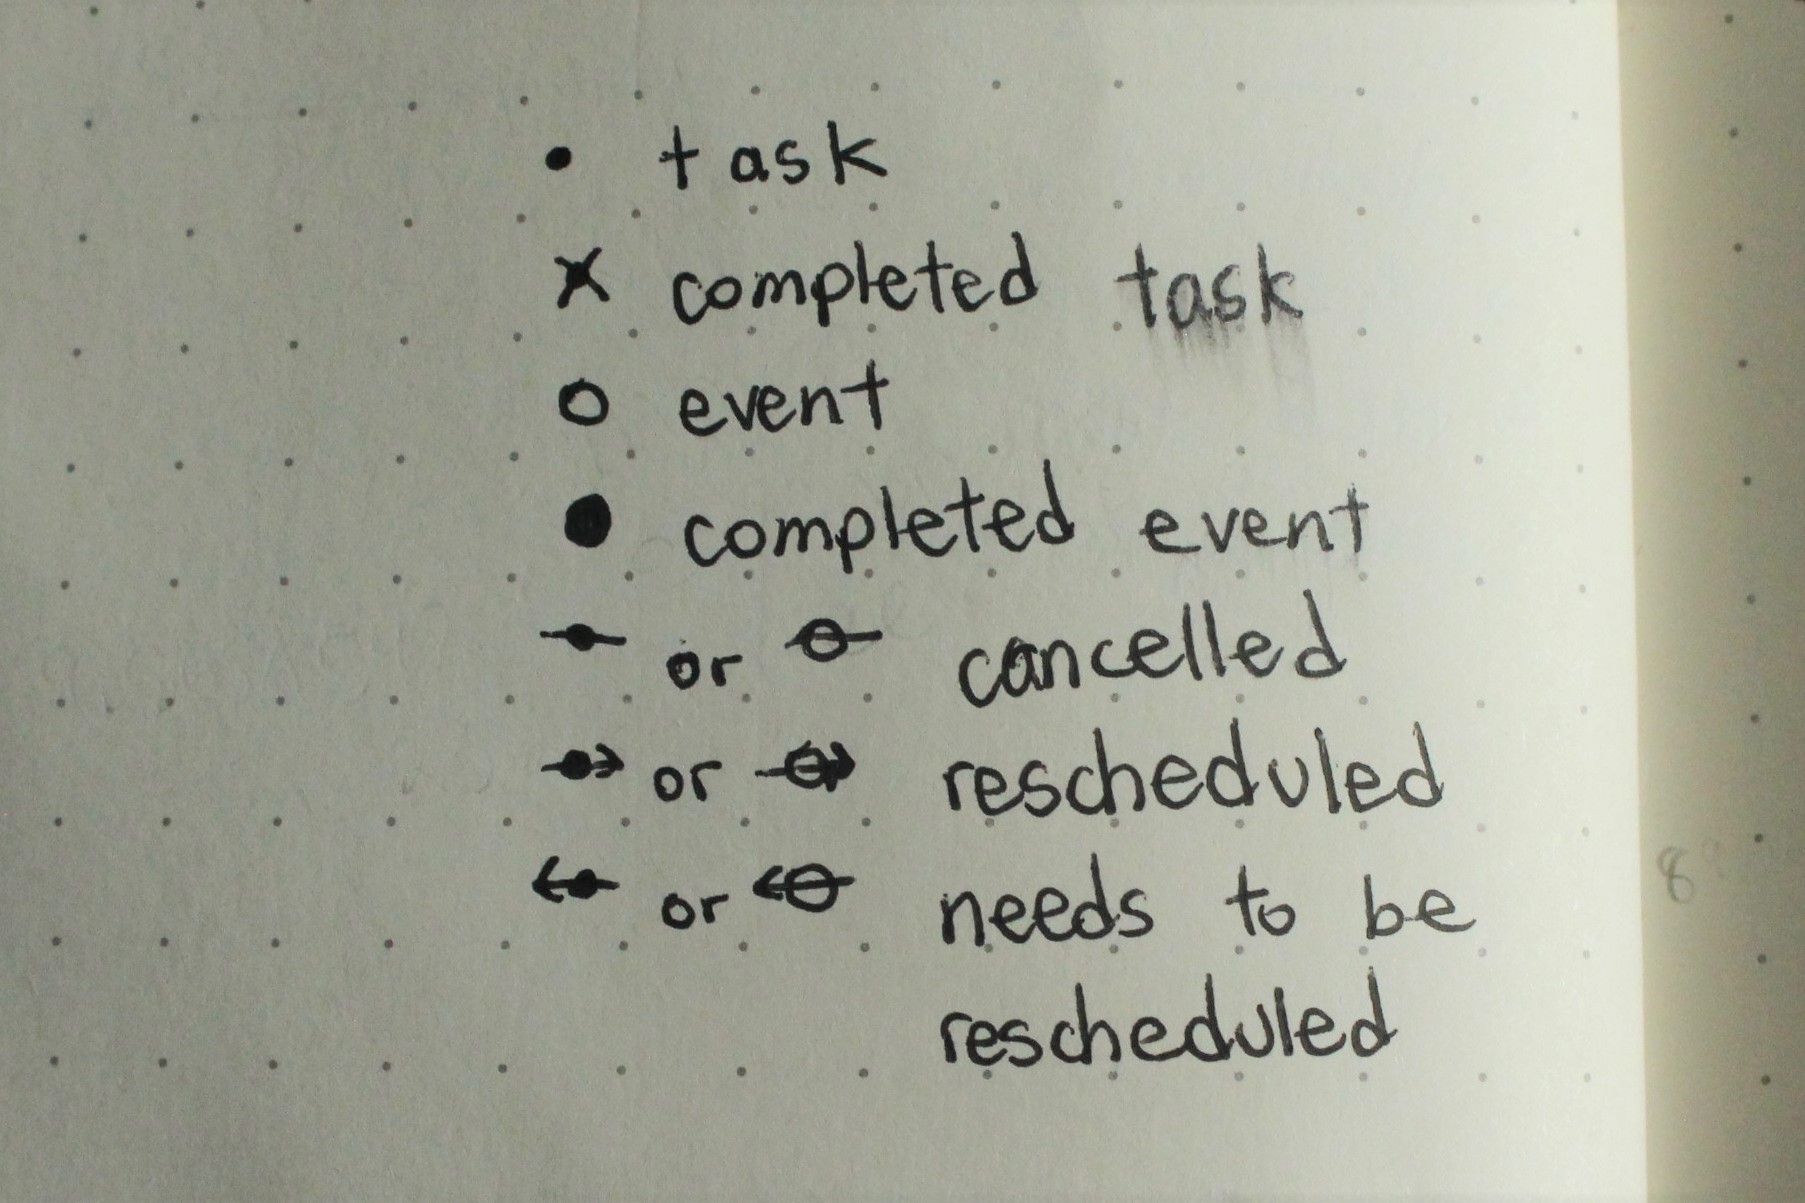 • task
x completed task
o event
● completed event
or cancelled
or rescheduled
or needs to be
rescheduled
8